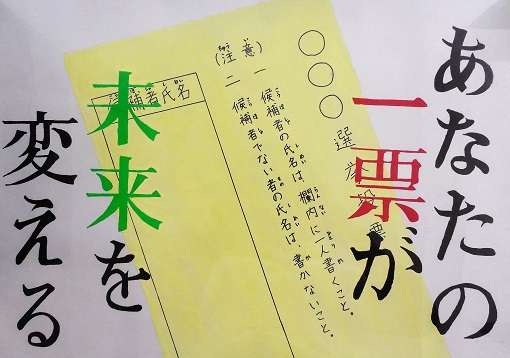 あなたの
一票が
未来を
変える
○○○選挙投票
(注意)
一 候補者の氏名は、欄内に一人書くこと。
二 候補者でない者の氏名は、書かないこと。
候補者氏名